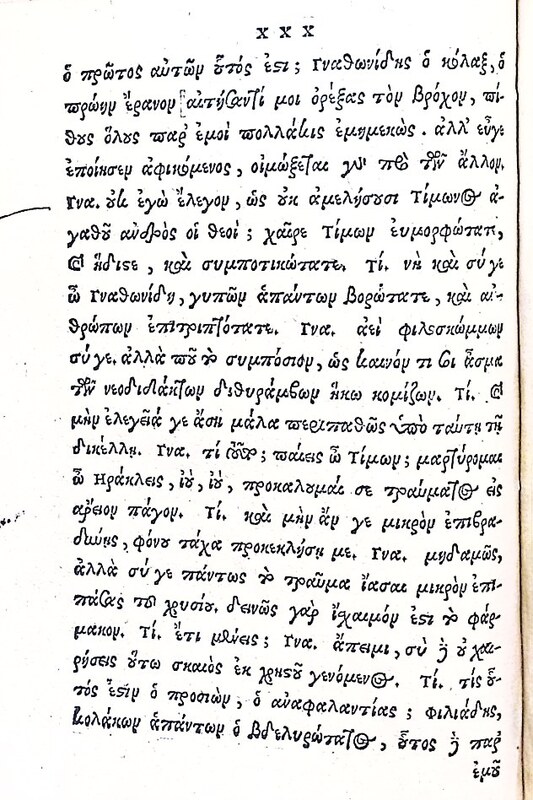 X X X
ὁ πρῶτος αὐτῶν οὗτός ἐστι; Γναθωνίδης ὁ κόλαξ, ὁ
πρώην ἔρανον αἰτήσαντί μοι ὀρέξας τὸν βρόχον, πί-
θους ὅλους παρ' ἐμοὶ πολλάκις ἐμημεκώς. ἀλλ' εὖγε
ἐποίησεν ἀφικόμενος, οἰμώξεται γὰρ πρὸ τῶν ἄλλων.
Γνα. οὐκ ἐγὼ ἔλεγον, ὡς οὐκ ἀμελήσουσι Τίμωνος ἀ-
γαθοῦ ἀνδρὸς οἱ θεοί; χαῖρε Τίμων εὐμορφώτατε,
καὶ ἥδιστε, καὶ συμποτικώτατε. Τί. νὴ καὶ σύ γε
ὦ Γναθωνίδη, γυπῶν ἁπάντων βορώτατε, καὶ ἀν-
θρώπων ἐπιτριπτότατε. Γνα. ἀεὶ φιλοσκώμμων
σύ γε. ἀλλὰ ποῦ τὸ συμπόσιον, ὡς καινόν τι σοι ἆσμα
τῶν νεοδιδάκτων διθυράμβων ἥκω κομίζων. Τί. καὶ
μὴν ἐλεγεῖά γε ἄσῃ μάλα περιπαθῶς ὑπὸ ταύτῃ τῇ
δικέλλῃ. Γνα. τί τοῦτο; παίεις ὦ Τίμων; μαρτύρομαι
ὦ Ηράκλεις, ἰού, ἰού, προκαλοῦμαί σε τραύματος εἰς
ἄρειον πάγον. Τί. καὶ μὴν ἄν γε μικρὸν ἐπιβρα-
δύνῃς, φόνου τάχα προκεκλήσῃ με. Γνα. μηδαμῶς,
ἀλλὰ σύ γε πάντως τὸ τραῦμα ἴασαι μικρὸν ἐπι-
πάσας τοῦ χρυσίου. δεινῶς γὰρ ἴχαιμόν ἐστι τὸ φάρ-
μακον. Τί. ἔτι μένεις; Γνα. ἄπειμι, σὺ δὲ οὐ χαι-
ρήσεις οὕτω σκαιὸς ἐκ χρηστοῦ γενόμενος. Τί. τίς οὗ-
τός ἐστιν ὁ προσιὼν, ὁ ἀναφαλαντίας; φιλιάδης,
κολάκων ἁπάντων ὁ βδελυρώτατος, οὗτος δὲ παρ'
ἐμοῦ